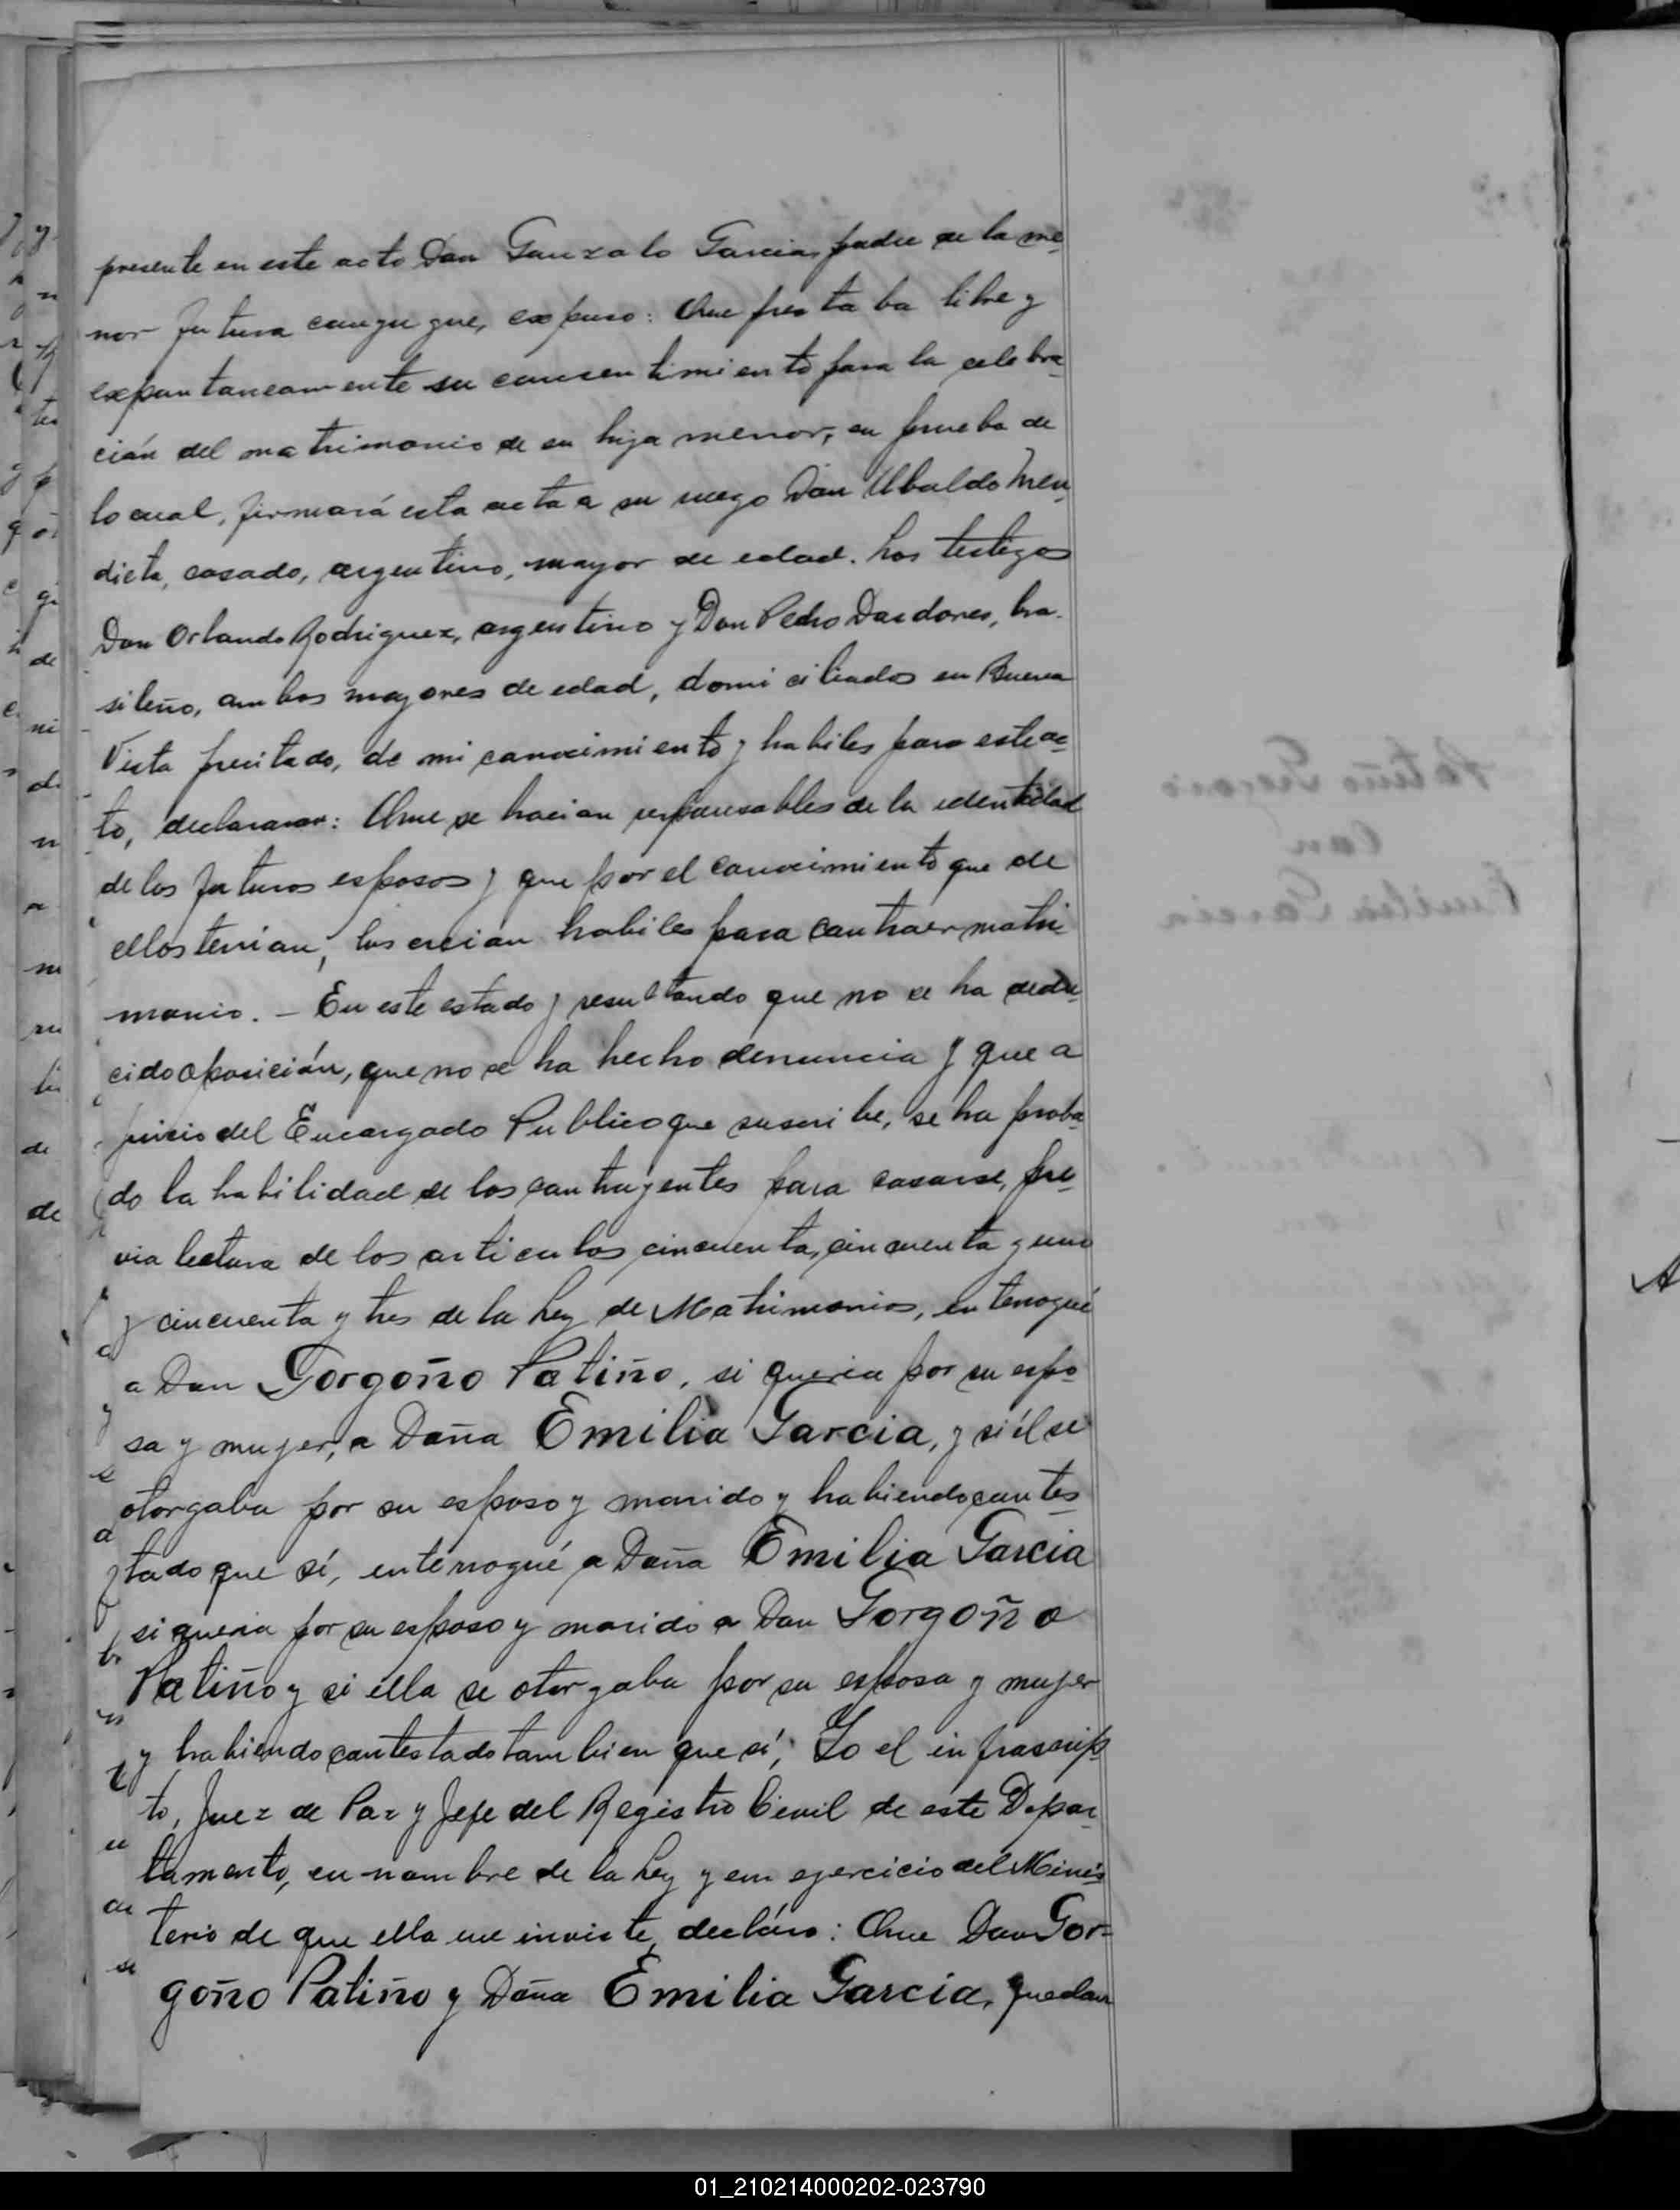 presente en este acto Don Gonzalo Garcia, padre de la me-
nor futura conyugue, expuso: Que presta ba libre y
expontaneamente su consentimiento para la celebra-
ción del matrimonio de su hija menor, en prueba de
lo cual, firmará esta acta a su ruego Don Ubaldo Men-
dieta, casado, argentino, mayor de edad. Los testigos
Don Orlando Rodriguez, argentino y Don Pedro Dardones, bra-
sileño, ambos mayores de edad, domiciliados en Buena
Vista precitado, de mi conocimiento y habiles para este ac-
to, declararon: Que se hacian responsables de la identidad
de los futuros esposos y que por el conocimiento que de
ellos tenian, los creian habiles para contraer matri-
monio. - En este estado y resultando que no se ha dedu-
cido oposición, que no se ha hecho denuncia y que a
juicio del Encargado Publico que suscribe, se ha proba-
do la habilidad de los contrayentes para casarse, pre-
via lectura de los articulos cincuenta, cincuenta y uno
y cincuenta y tres de la Ley de Matrimonios, interrogué
a Don Gorgoño Patiño, si queria por su espo-
sa y mujer, a Doña Emilia Garcia, y si él se
otorgaba por su esposo y marido y habiendo contes-
tado que sí, interrogué a Doña Emilia Garcia
si queria por su esposo y marido a Don Gorgoño
Patiño y si ella se otorgaba por su esposa y mujer
y habiendo contestado tambien que sí; Yo el infrascrip-
to, Juez de Paz y Jefe del Registro Civil de este Depar-
tamento, en nombre de la Ley y en ejercicio del Minis-
terio de que ella me inviste, declaro: Que Don Gor-
goño Patiño y Doña Emilia Garcia, quedan
01_210214000202-023790